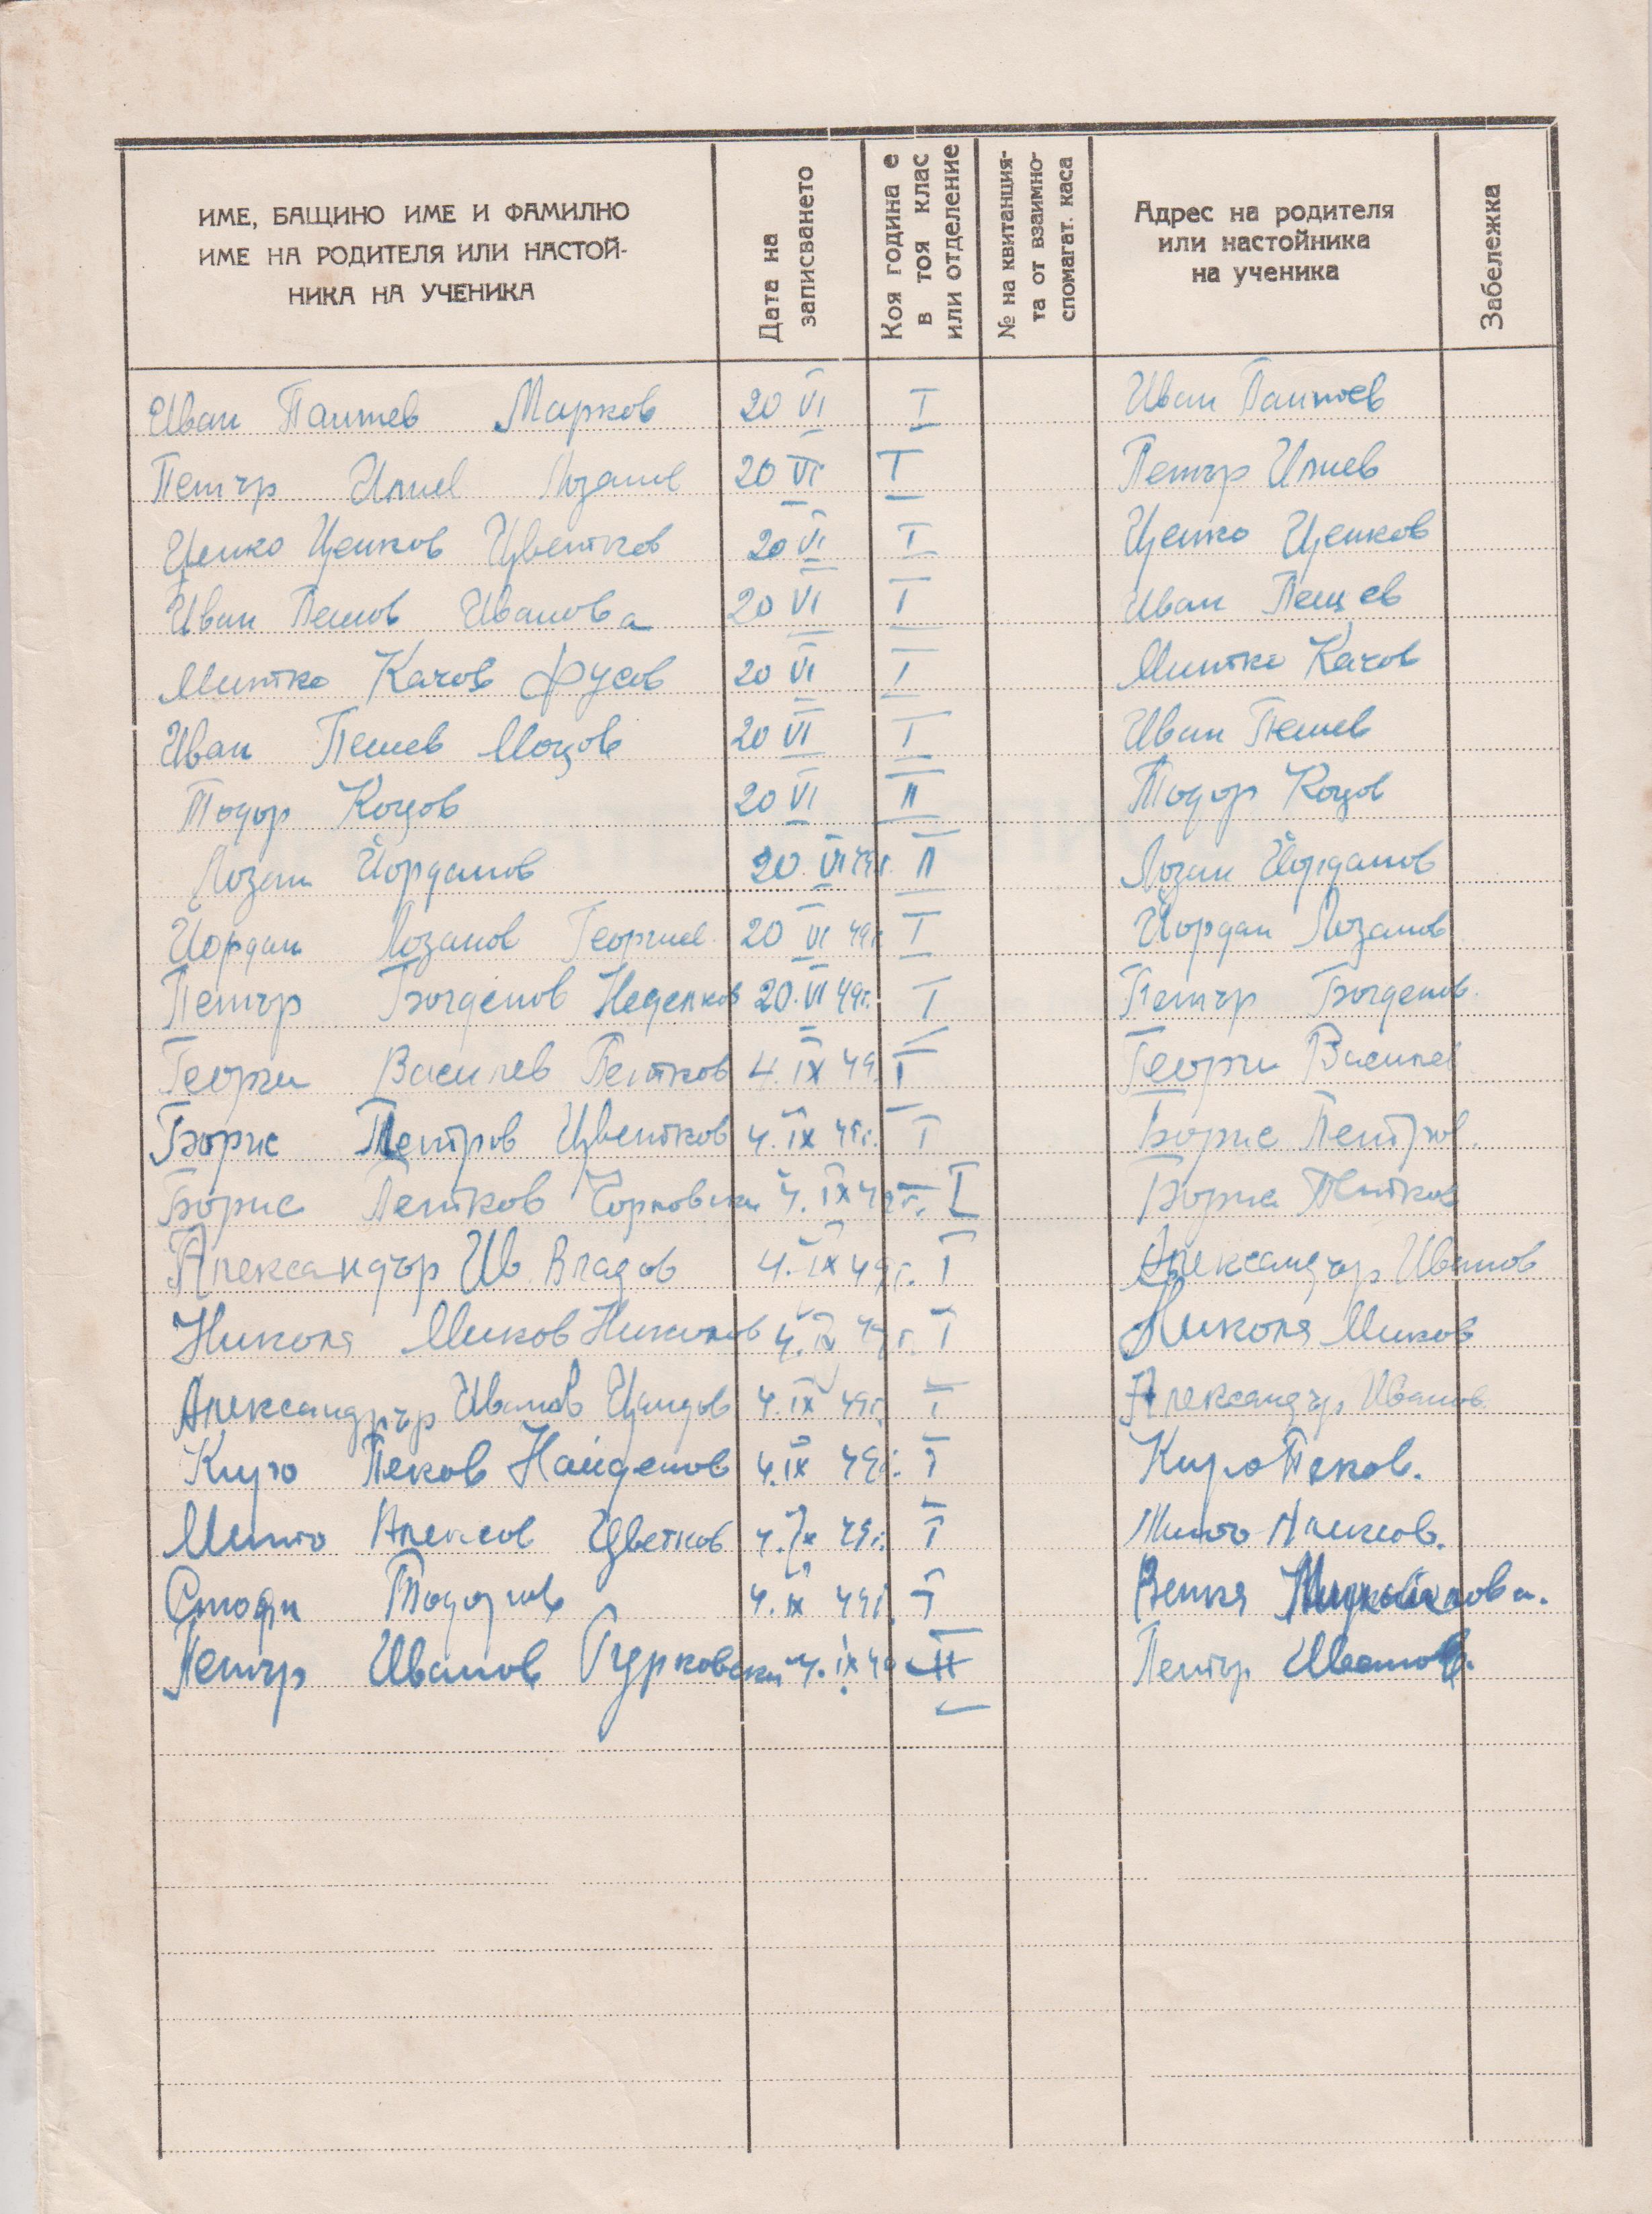 ИМЕ, БАЩИНО ИМЕ И ФАМИЛНО
ИМЕ НА РОДИТЕЛЯ ИЛИ НАСТОЙ-
НИКА НА УЧЕНИКА
Дата на
записването
Коя година е
в тоя клас
или отделение
№ на квитанция-
та от взаимно-
спомагат. каса
Адрес на родителя
или настойника
на ученика
Забележка
Иван Марков 20 VI I Иван
Петър Илиев 20 VI I Петър Илиев
Ценко Ценков Цветков 20 VI I Ценко Ценков
Иван Иванова 20 VI I Иван
Митко Качов Фусов 20 VI I Митко Качов
Иван Пешев Моцов 20 VI I Иван Пешев
Тодор Коцов 20 VI II Тодор Коцов
Лозан Йорданов 20. VI 49г. II Лозан Йорданов
Йордан Лозанов Георгиев 20 VI 49г. I Йордан Лозанов
Петър Богданов Неделков 20. VI 49г. I Петър Богданов.
Георги Василев Петков 4. IX 49 I Георги Василев
Борис Петров Цветков 4. IX 49г. I Борис Петров.
Борис Петков 4. IX 49г. I Борис Петков
Александър Ив. Владов 4. IX 49г. I Александър Иванов
Никола Миков Николов 4. IX 49г. I Никола Миков
Александър Иванов Цандов 4. IX 49г. I Александър Иванов.
Киро Пеков Найденов 4. IX 49г. I Киро Пеков.
Минчо Алексов Цветков 4. IX 49г. I Минчо Алексов.
Стоян Тодоров 4. IX 49г. I
Петър Иванов Гурковски 4. IX 49 II Петър Иванов.